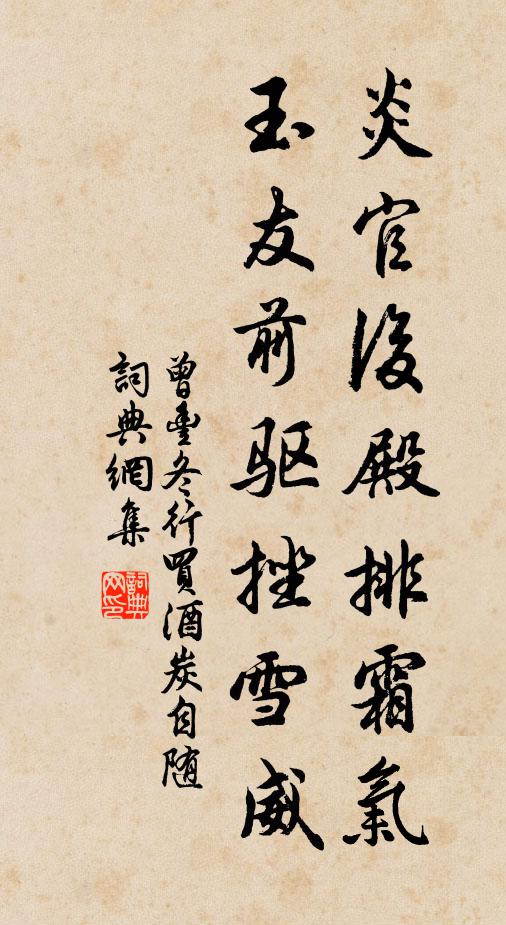 炎官後殿排霜氣
玉友前驱挫雪威
曾豐冬行買酒炭自随
詞典網集
詞典网印